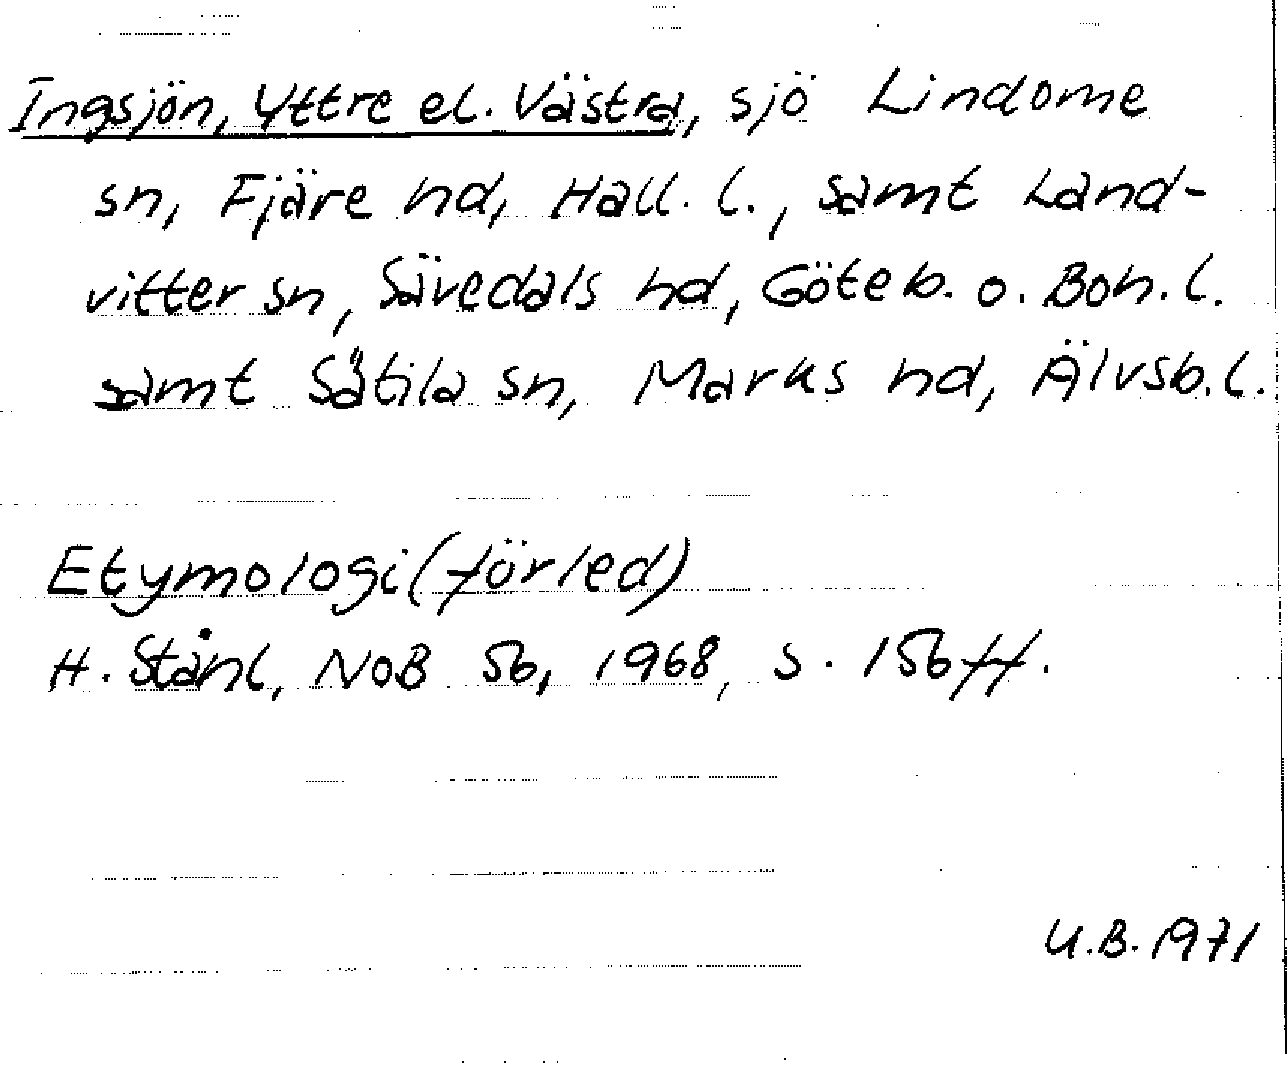 Ingsjön, Yttre el. Västra, sjö Lindome
sn, Fjäre hd, Hall. l., samt Land-
vitter sn, Sävedals hd, Göteb. o. Boh. l.
samt Sätila sn, Marks hd, Älvsb. l.
Etymologi (förled)
H. Ståhl, NoB 56, 1968, s. 156 ff.
U.B. 1971